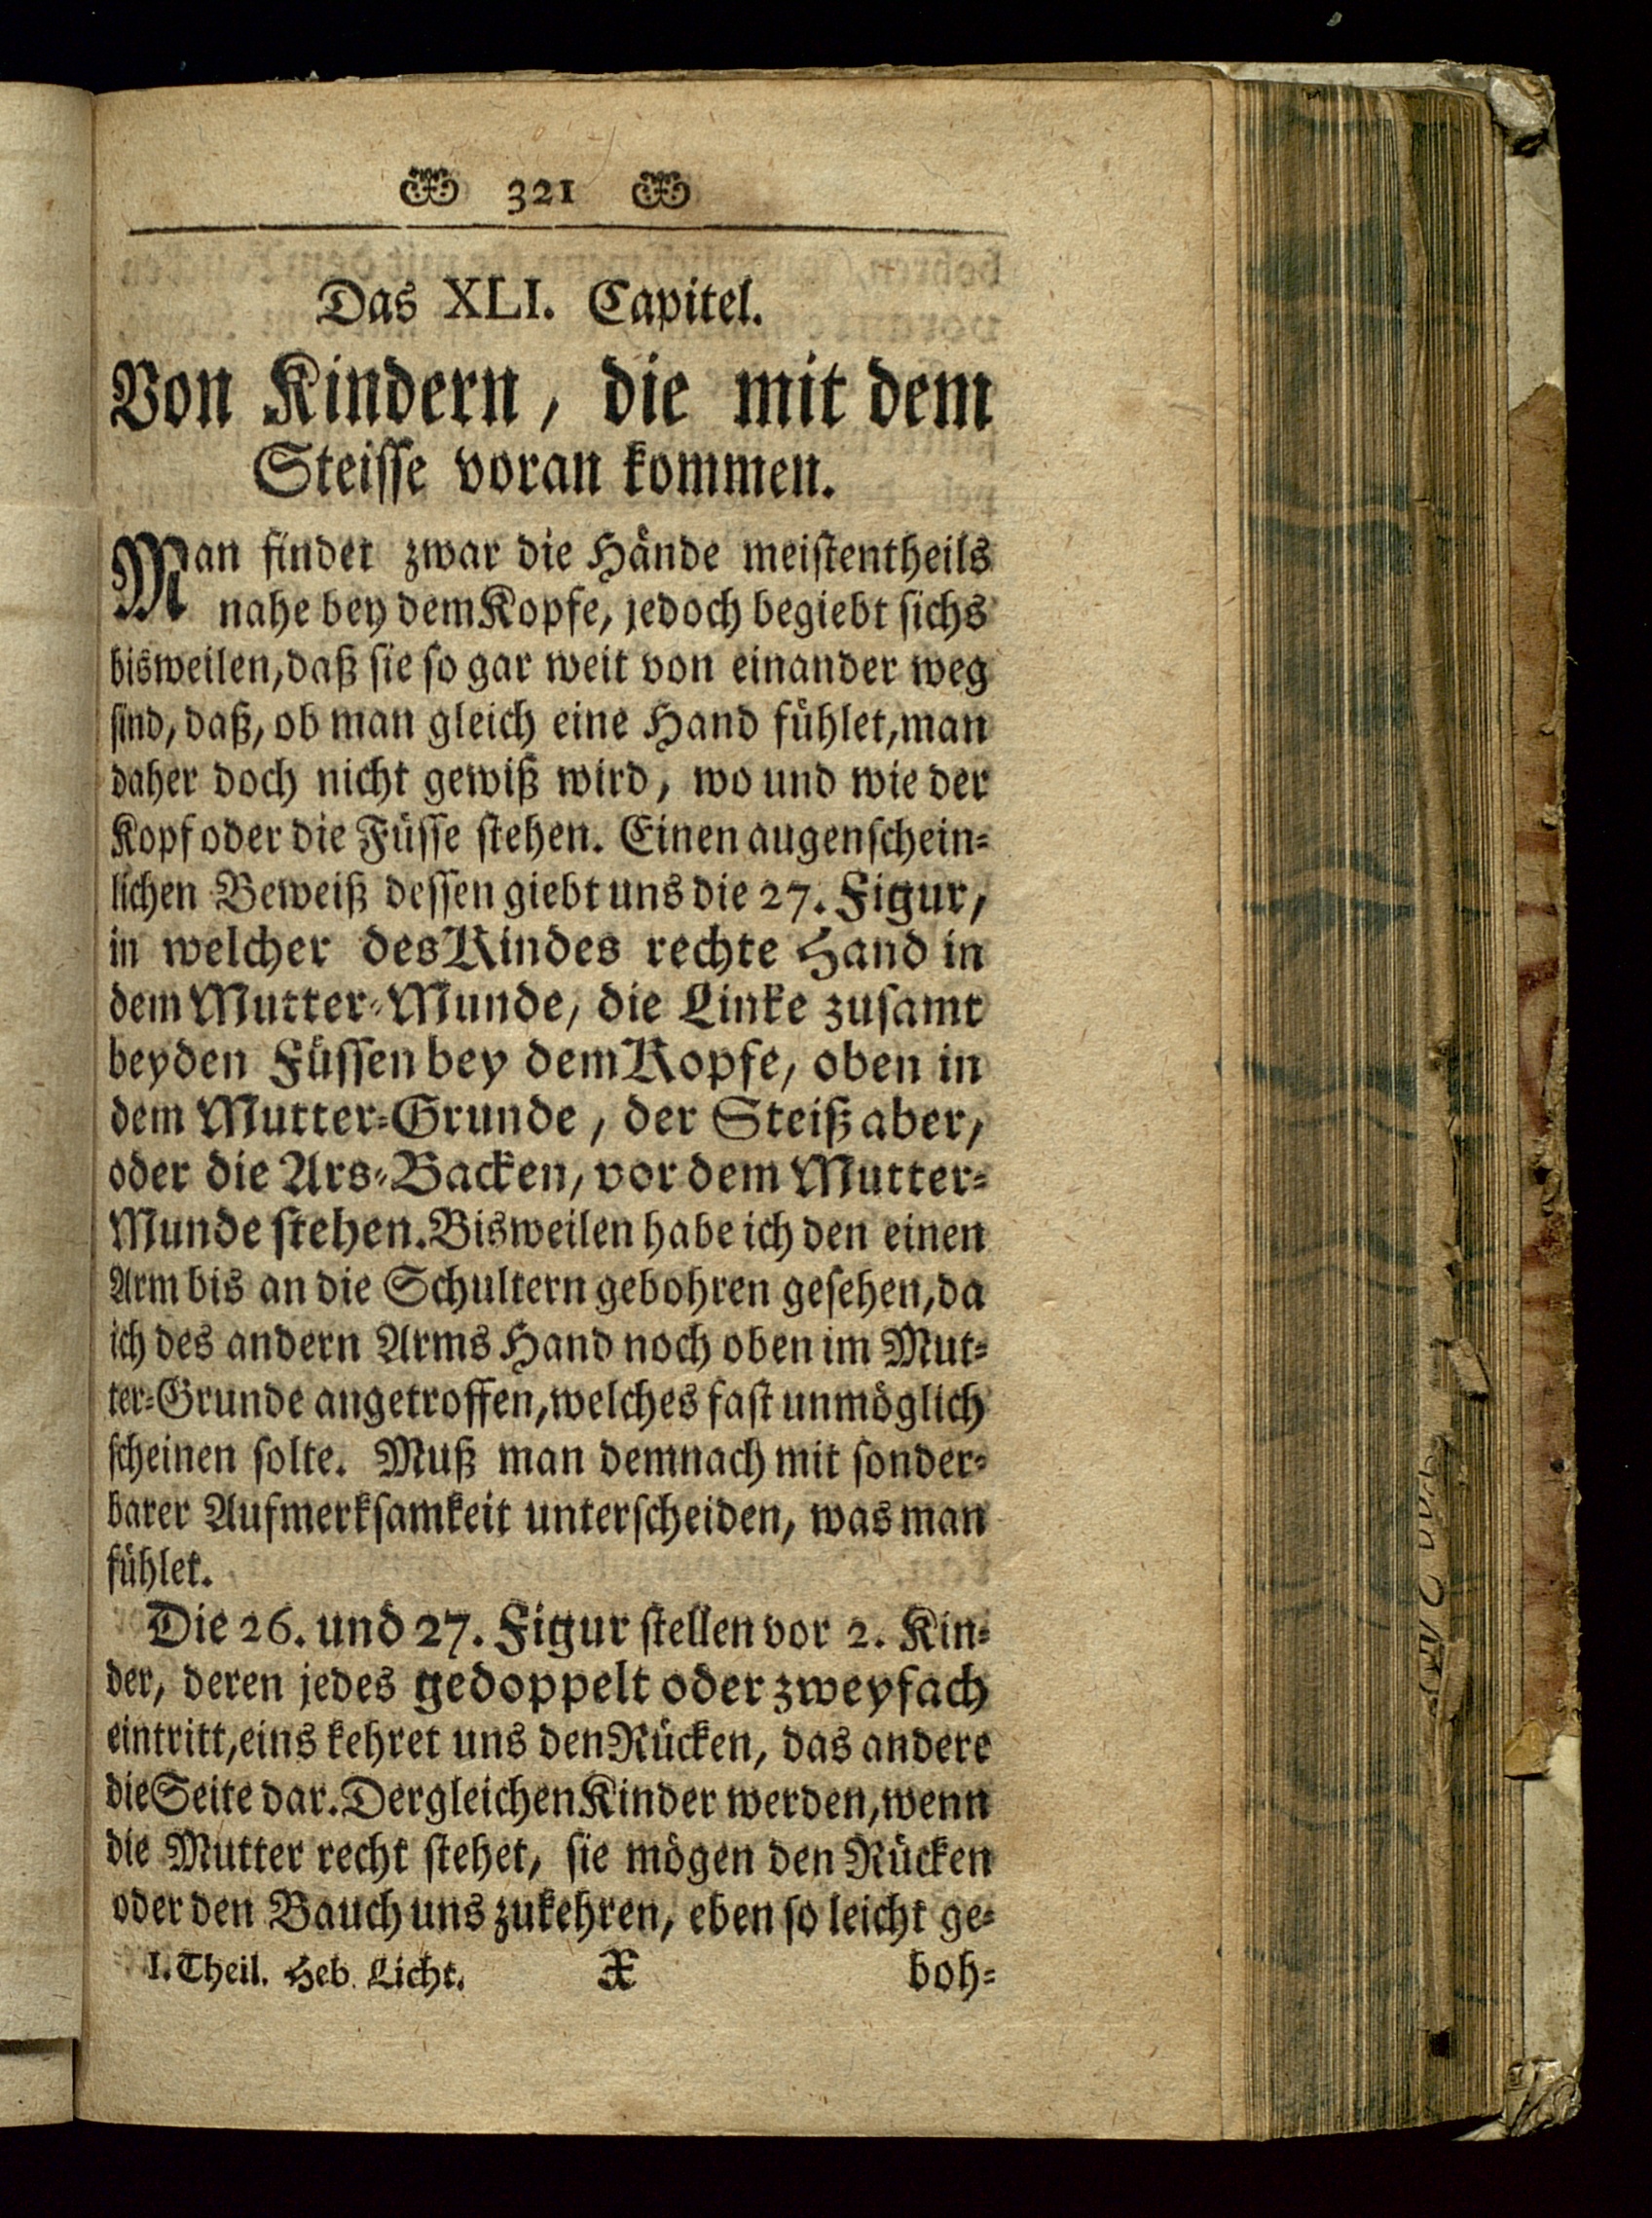 321
Das XLI. Capitel.
Von Kindern, die mit dem
Steisse voran kommen.
Man findet zwar die Hände meistentheils
nahe bey dem Kopfe, jedoch begiebt sichs
bisweilen, daß sie so gar weit von einander weg
sind, daß, ob man gleich eine Hand fühlet, man
daher doch nicht gewiß wird, wo und wie der
Kopf oder die Füsse stehen. Einen augenschein-
lichen Beweiß dessen giebt uns die 27. Figur,
in welcher des Kindes rechte Hand in
dem Mutter-Munde, die Linke zusamt
beyden Füssen bey dem Kopfe, oben in
dem Mutter-Grunde, der Steiß aber,
oder die Ars-Backen, vor dem Mutter-
Munde stehen. Bisweilen habe ich den einen
Arm bis an die Schultern gebohren gesehen, da
ich des andern Arms Hand noch oben im Mut-
ter-Grunde angetroffen, welches fast unmöglich
scheinen solte. Muß man demnach mit sonder-
barer Aufmerksamkeit unterscheiden, was man
fühlet.
Die 26. und 27. Figur stellen vor 2. Kin-
der, deren jedes gedoppelt oder zweyfach
eintritt, eins kehret uns den Rücken, das andere
die Seite dar. Dergleichen Kinder werden, wenn
die Mutter recht stehet, sie mögen den Rücken
oder den Bauch uns zukehren, eben so leicht ge-
I. Theil. Heb. Licht. X boh-